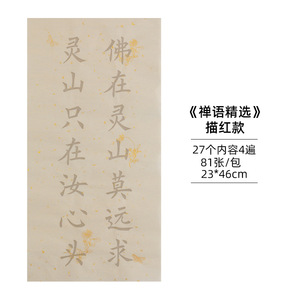 佛在灵山莫远求
灵山只在汝心头
《禅语精选》
描红款
27个内容4遍
81张/包
23*46cm